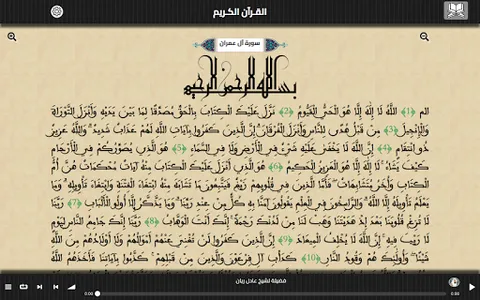 القرآن الكريم
سورة آل عمران
بسم الله الرحمن الرحيم
الم ﴿1﴾ اللَّهُ لَا إِلَهَ إِلَّا هُوَ الْحَيُّ الْقَيُّومُ ﴿2﴾ نَزَّلَ عَلَيْكَ الْكِتَابَ بِالْحَقِّ مُصَدِّقًا لِمَا بَيْنَ يَدَيْهِ وَأَنْزَلَ التَّوْرَاةَ
وَالْإِنْجِيلَ ﴿3﴾ مِنْ قَبْلُ هُدًى لِلنَّاسِ وَأَنْزَلَ الْفُرْقَانَ إِنَّ الَّذِينَ كَفَرُوا بِآيَاتِ اللَّهِ لَهُمْ عَذَابٌ شَدِيدٌ وَاللَّهُ عَزِيزٌ
ذُو انْتِقَامٍ ﴿4﴾ إِنَّ اللَّهَ لَا يَخْفَى عَلَيْهِ شَيْءٌ فِي الْأَرْضِ وَلَا فِي السَّمَاءِ ﴿5﴾ هُوَ الَّذِي يُصَوِّرُكُمْ فِي الْأَرْحَامِ
كَيْفَ يَشَاءُ لَا إِلَهَ إِلَّا هُوَ الْعَزِيزُ الْحَكِيمُ ﴿6﴾ هُوَ الَّذِي أَنْزَلَ عَلَيْكَ الْكِتَابَ مِنْهُ آيَاتٌ مُحْكَمَاتٌ هُنَّ أُمُّ
الْكِتَابِ وَأُخَرُ مُتَشَابِهَاتٌ فَأَمَّا الَّذِينَ فِي قُلُوبِهِمْ زَيْغٌ فَيَتَّبِعُونَ مَا تَشَابَهَ مِنْهُ ابْتِغَاءَ الْفِتْنَةِ وَابْتِغَاءَ تَأْوِيلِهِ وَمَا
يَعْلَمُ تَأْوِيلَهُ إِلَّا اللَّهُ وَالرَّاسِخُونَ فِي الْعِلْمِ يَقُولُونَ آمَنَّا بِهِ كُلٌّ مِنْ عِنْدِ رَبِّنَا وَمَا يَذَّكَّرُ إِلَّا أُولُو الْأَلْبَابِ ﴿7﴾ رَبَّنَا
لَا تُزِغْ قُلُوبَنَا بَعْدَ إِذْ هَدَيْتَنَا وَهَبْ لَنَا مِنْ لَدُنْكَ رَحْمَةً إِنَّكَ أَنْتَ الْوَهَّابُ ﴿8﴾ رَبَّنَا إِنَّكَ جَامِعُ النَّاسِ لِيَوْمٍ
لَا رَيْبَ فِيهِ إِنَّ اللَّهَ لَا يُخْلِفُ الْمِيعَادَ ﴿9﴾ إِنَّ الَّذِينَ كَفَرُوا لَنْ تُغْنِيَ عَنْهُمْ أَمْوَالُهُمْ وَلَا أَوْلَادُهُمْ مِنَ اللَّهِ
شَيْئًا وَأُولَئِكَ هُمْ وَقُودُ النَّارِ ﴿10﴾ كَدَأْبِ آلِ فِرْعَوْنَ وَالَّذِينَ مِنْ قَبْلِهِمْ كَذَّبُوا بِآيَاتِنَا فَأَخَذَهُمُ اللَّهُ
فضيلة الشيخ عادل ريان
0:00
0:00